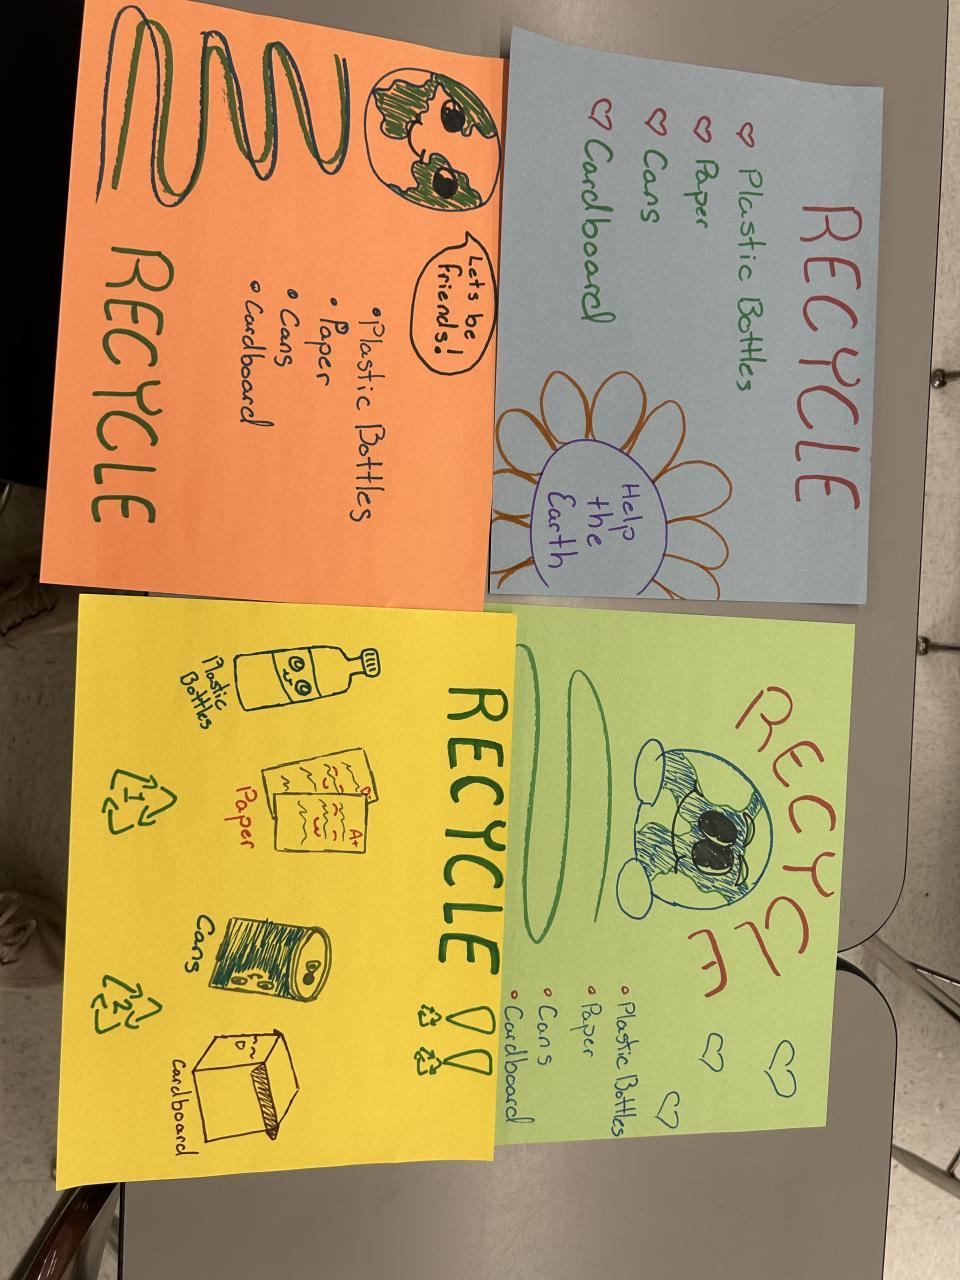 RECYCLE
Plastic Bottles
Paper
Cans
Cardboard
Help
the
Earth
Let's be
friends!
• Plastic Bottles
• Paper
• Cans
• Cardboard
RECYCLE
RECYCLE
• Plastic Bottles
• Paper
• Cans
• Cardboard
RECYCLE!!
A+
Plastic
Bottles
Paper
Cans
Cardboard
1
2